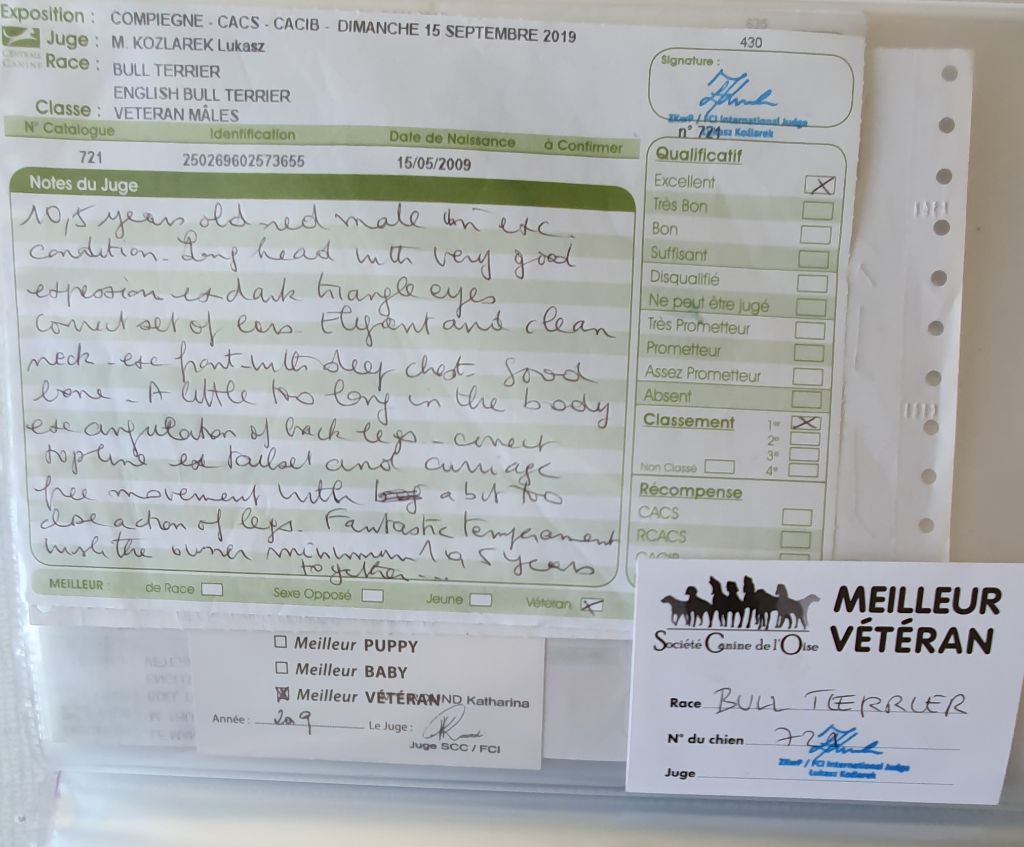 Exposition : COMPIEGNE - CACS - CACIB - DIMANCHE 15 SEPTEMBRE 2019
430
CENTRALE CANINE
Juge : M. KOZLAREK Lukasz
Race : BULL TERRIER
ENGLISH BULL TERRIER
Classe : VETERAN MÂLES
Signature :
ZKwP / FCI International Judge
Lukasz Koźlarek
n° 721
N° Catalogue Identification Date de Naissance à Confirmer
721 250269602573655 15/05/2009
Notes du Juge
10,5 years old red male in exc.
condition - Long head with very good
expession ex dark triangle eyes
correct set of ears. Elegant and clean
neck - exc front - with deep chest good
bone - A little too long in the body
exc angulation of back legs - correct
topline ex tailset and carriage
free movement with a bit too
close action of legs. Fantastic temperament
wish the owner minimum 10,5 years
together...
MEILLEUR : de Race Sexe Opposé Jeune Vétéran
Qualificatif
Excellent
Très Bon
Bon
Suffisant
Disqualifié
Ne peut être jugé
Très Prometteur
Prometteur
Assez Prometteur
Absent
Classement 1er
2e
3e
Non Classé 4e
Récompense
CACS
RCACS
CACIB
Meilleur PUPPY
Meilleur BABY
Meilleur VÉTÉRAN Katharina
Année : 2019 Le Juge :
Juge SCC / FCI
MEILLEUR
VÉTÉRAN
Société Canine de l'Oise
Race BULL TERRIER
N° du chien 721
ZKwP / FCI International Judge
Lukasz Koźlarek
Juge